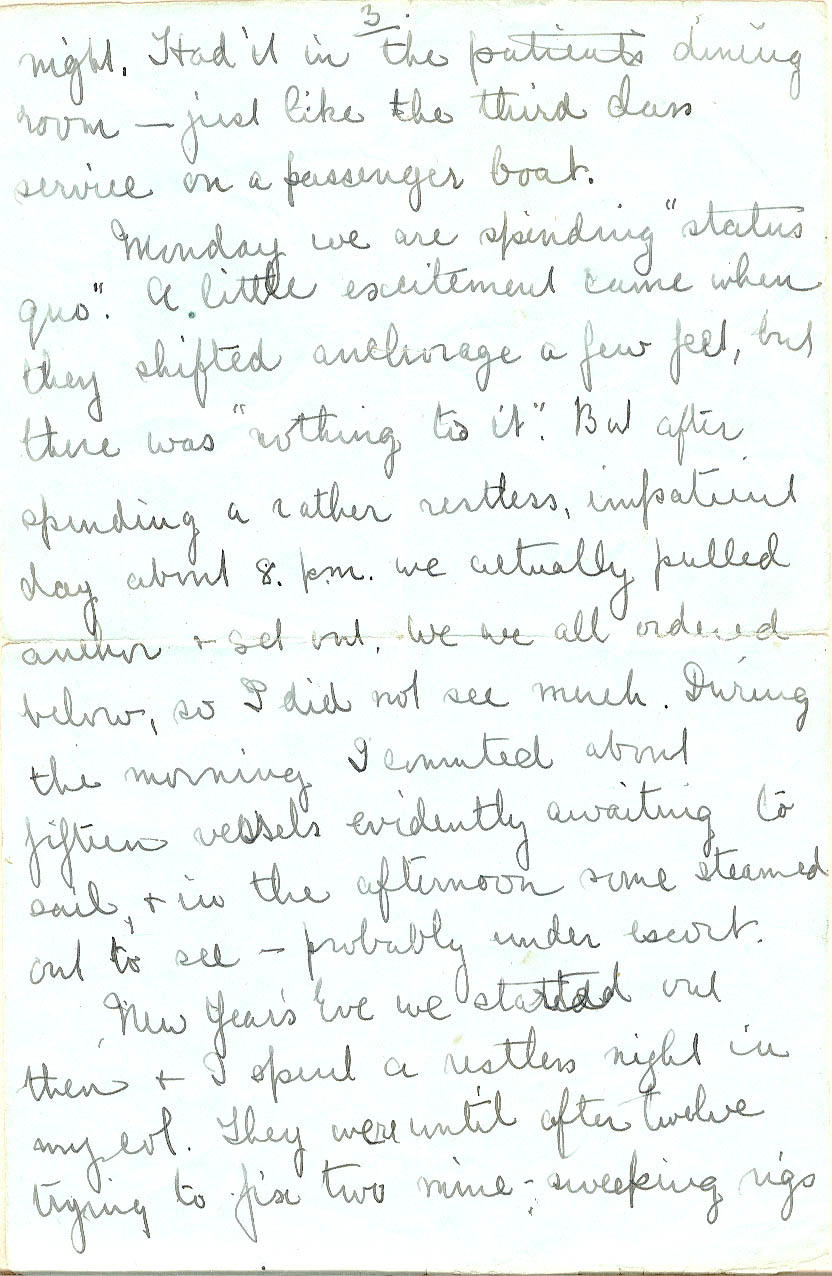 3.
night. Had it in the patients dining
room — just like the third class
service on a passenger boat.
Monday we are spending "status
quo". A little excitement came when
they shifted anchorage a few feet, but
there was "nothing to it". But after
spending a rather restless, impatient
day about 8. p.m. we actually pulled
anchor + set out. We we all ordered
below, so I did not see much. During
the morning I counted about
fifteen vessels evidently awaiting to
sail, + in the afternoon some steamed
out to see — probably under escort.
New Year's Eve we started out
then + I spent a restless night in
my cot. They were until after twelve
trying to fix two mine-sweeping rigs